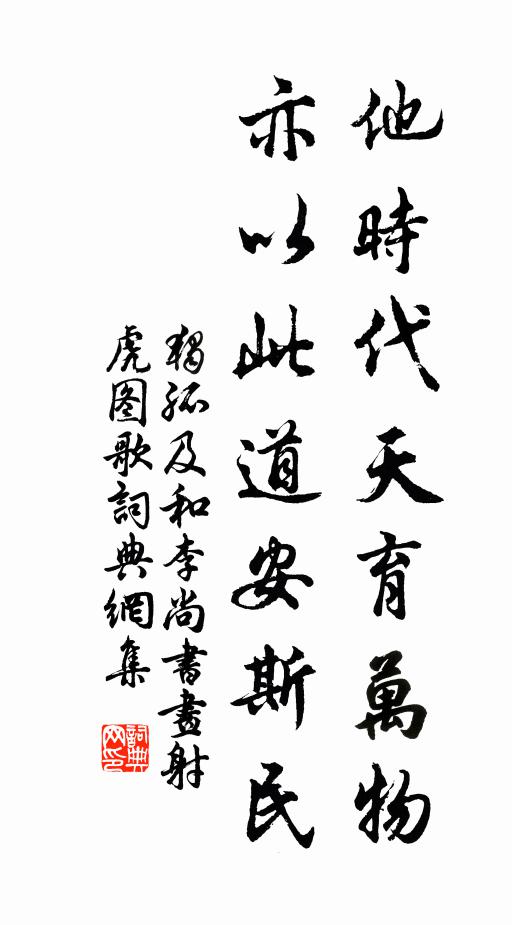 他時代天育萬物
亦以此道安斯民
獨孤及和李尚書畫射
虎图歌詞典網集
詞典
网印